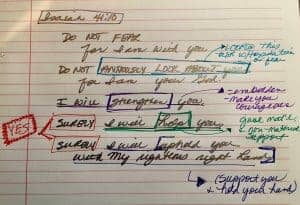 Isaiah 41:10
DO NOT FEAR
for I am with you
DO NOT ANXIOUSLY LOOK ABOUT YOU
for I am your God!
I will strengthen you,
SURELY I will help you,
SURELY I will uphold you
with My righteous right hand.
YES!
→ embolden
- make you
courageous
give mat'l
& non-material
support
(support you
& hold your hand)